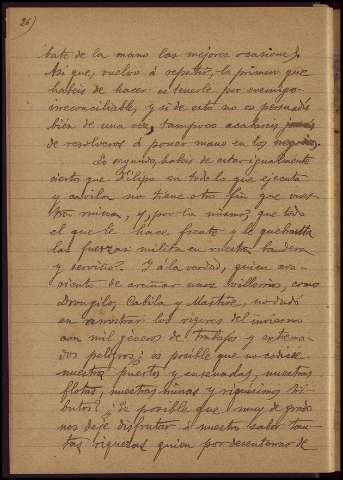 26)
bate de la mano las mejores ocasiones.
Así que, vuelvo á repetir, lo primero que
habeis de hacer es tenerle por enemigo
irreconciliable, y si de esto no os persuadis
bien de una vez, tampoco acabareis jamás
de resolveros á poner mano en los negocios.
Lo segundo, habeis de estar igualmente
ciertos que Filipo en todo lo que ejecuta
y cavila no tiene otro fin que vues-
tra ruina, y, por lo mismo, que todo
el que le hace frente y le quebranta
las fuerzas milita en vuestra bandera
y servicio. Y á la verdad, quien ava-
riento de arañar unos villorrios, como
Drongilo, Cabila y Mastira, no dudó
en arrostrar los rigores del invierno
con mil géneros de trabajos y extrema-
dos peligros; ¿es posible que no codicie
nuestros puertos y ensenadas, nuestras
flotas, nuestras minas y riquísimos tri-
butos? ¿Es posible que muy de grado
nos deje disfrutar á nuestro sabor tan-
tas riquezas quien por desenterrar de